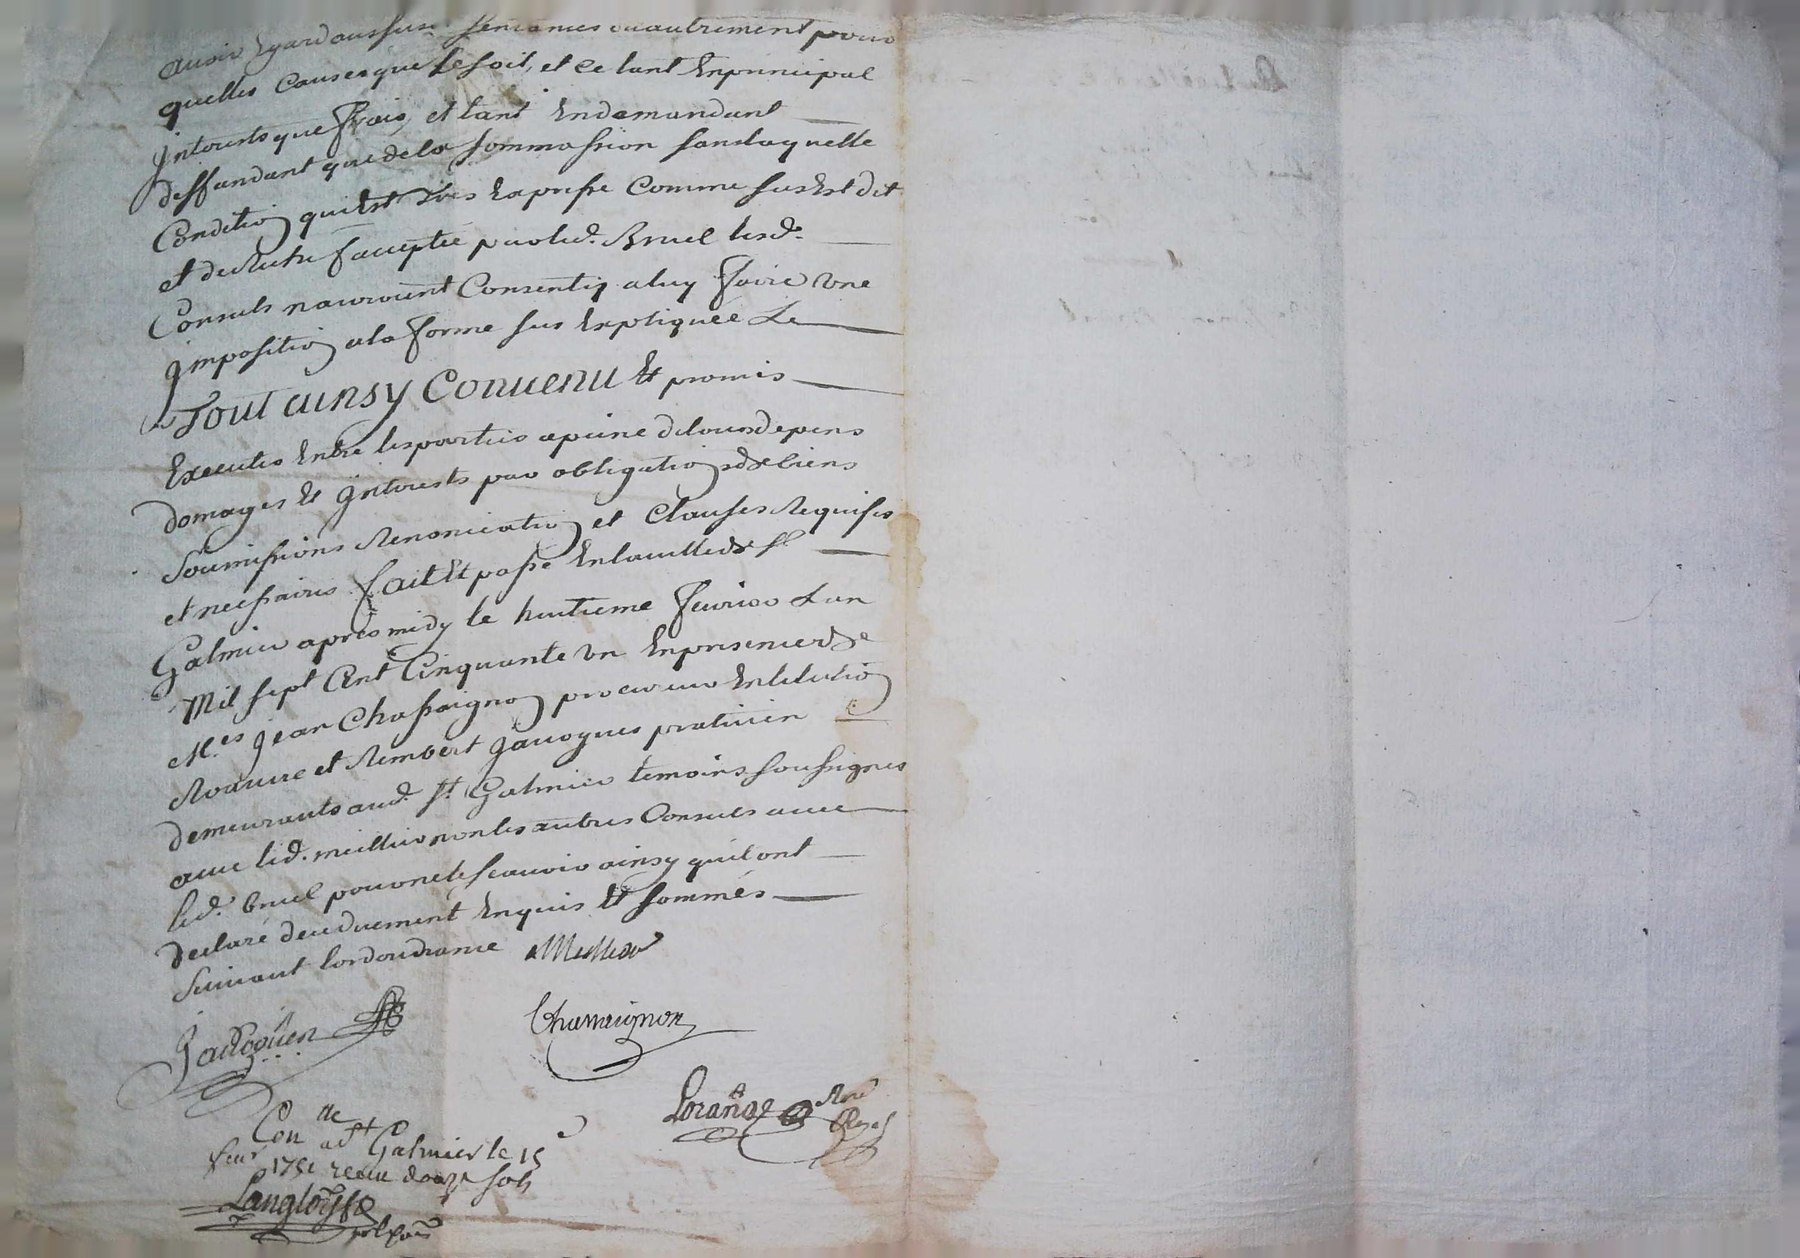 avoir Egard aussusd. sentences ou autrement pour
quelles causes que ce soit, et ce tant En principal
Jnterests que frais, et tant En demandant
deffandant que de la sommassion sans laquelle
Condition qui Est Tres Expresse Comme sus Est dit
et de suitte facceptée par led. Bruel lesd.
Consuls nauroient Consentis a luy faire Une
Jmposition a la forme sus Expliquée Le
Tout ainsy Convenu Et promis
Executer Entre les parties a peine de tous depens
domages Et Jnterests par obligation de biens
soumissions Renonciation et Clauses Requises
et necessaires fait Et passé En la ville de St
Galmier apres midy le huitieme fevrier Lan
Mil sept Cent Cinquante Un En presence de
Me.s Jean Chassaignon procureur En lelection
Roanne et Rembert Javogues praticien
demeurants aud. St. Galmier temoins soussignes
avec led. meillier non les autres Consuls avec
led. bruel pour ne le scavoir ainsy quil ont
declaré de ce duement Enquis Et sommés
suivant lordondrance Mellier
Javogues
Chassaignon
Lorange Nore
Royal
Con lle ad St Galmier le 15
fevr 1751 receu douze sols
Langlois